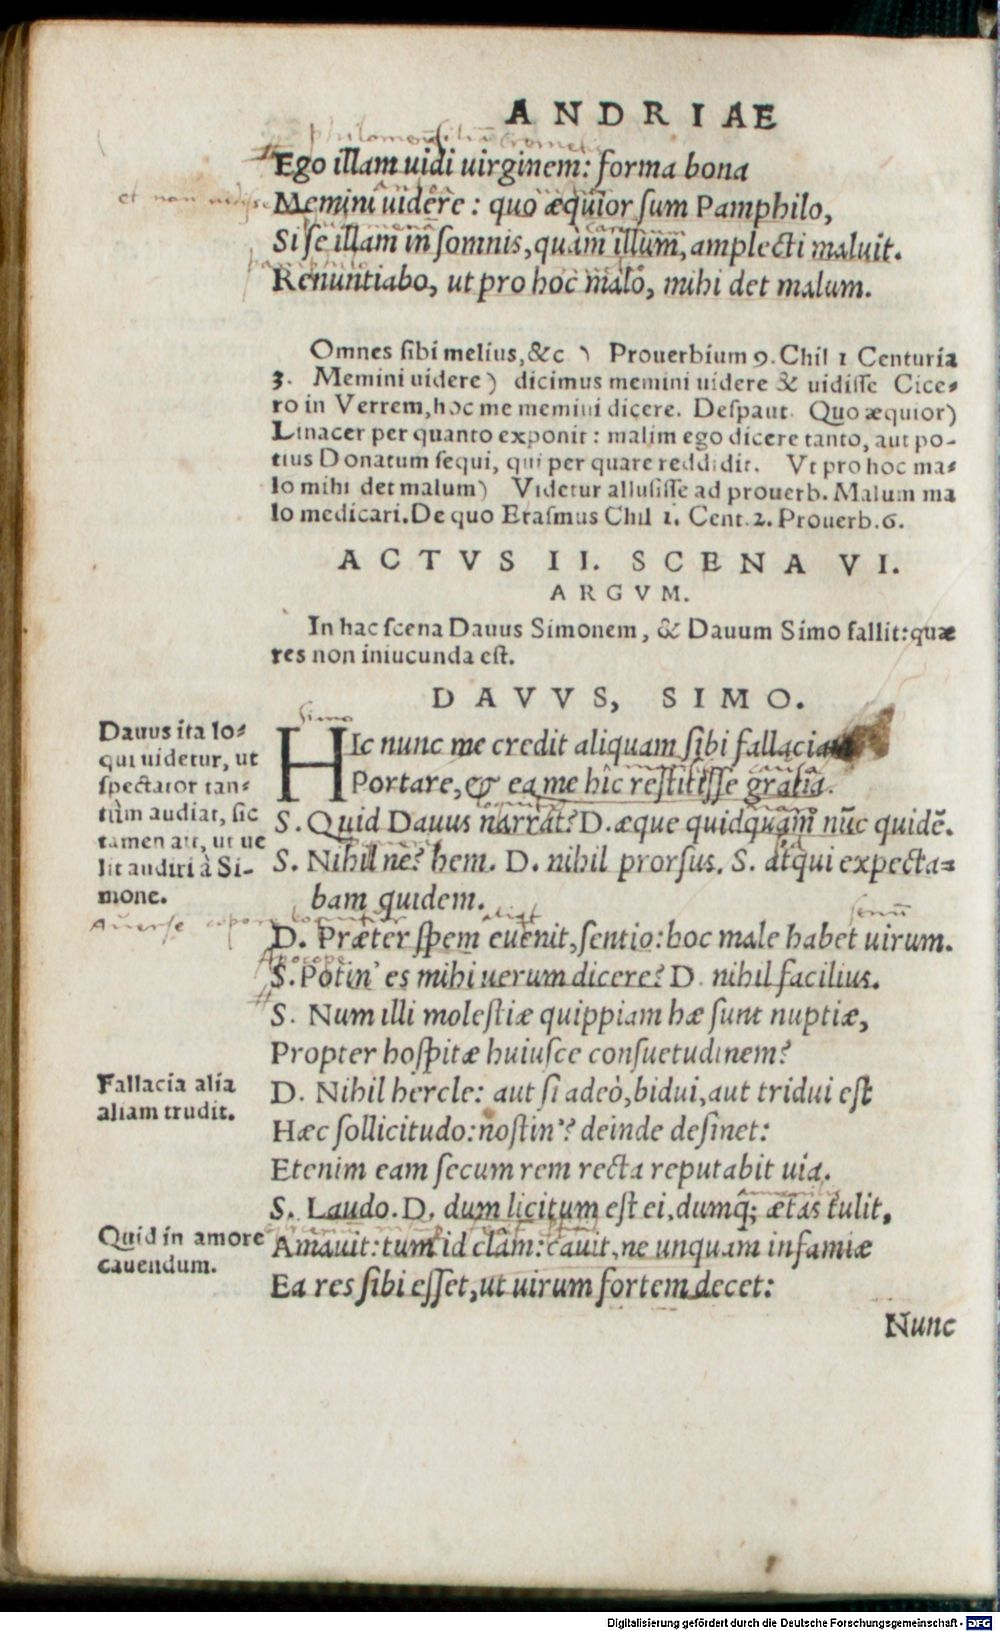 ANDRIAE
Ego illam uidi uirginem: forma bona
et non uidisse
Memini uidere: quo æquior sum Pamphilo,
Si se illam in somnis, quàm illum, amplecti maluit.
Renuntiabo, ut pro hoc malo, mihi det malum.
Omnes sibi melius, &c ) Prouerbium 9. Chil 1 Centuria
3. Memini uidere) dicimus memini uidere & uidisse Cice-
ro in Verrem, hoc me memini dicere. Despaut. Quo æquior)
Linacer per quanto exponit: malim ego dicere tanto, aut po-
tius Donatum sequi, qui per quare reddidit. Vt pro hoc ma-
lo mihi det malum) Videtur allusisse ad prouerb. Malum ma
lo medicari. De quo Erasmus Chil 1. Cent. 2. Prouerb. 6.
ACTVS II. SCENA VI.
ARGVM.
In hac scena Dauus Simonem, & Dauum Simo fallit: quæ
res non iniucunda est.
DAVVS, SIMO.
Simo
Dauus ita lo-
qui uidetur, ut
spectator tan-
tùm audiat, sic
tamen ait, ut ue
lit audiri à Si-
mone.
HIc nunc me credit aliquam sibi fallaciam
Portare, & ea me hîc restitisse gratia.
S. Quid Dauus narrat? D. æque quidquam nūc quidē.
S. Nihil ne? hem. D. nihil prorsus. S. atqui expecta-
bam quidem.
D. Præter spem euenit, sentio: hoc male habet uirum.
Apocope
S. Potin' es mihi uerum dicere? D. nihil facilius.
S. Num illi molestiæ quippiam hæ sunt nuptiæ,
Propter hospitæ huiusce consuetudinem?
Fallacia alia
aliam trudit.
D. Nihil hercle: aut si adeò, bidui, aut tridui est
Hæc sollicitudo: nostin'? deinde desinet:
Etenim eam secum rem recta reputabit uia.
S. Laudo. D. dum licitum est ei, dumq; ætas tulit,
Quid in amore
cauendum.
Amauit: tum id clam: cauit, ne unquam infamiæ
Ea res sibi esset, ut uirum fortem decet:
Nunc
Digitalisierung gefördert durch die Deutsche Forschungsgemeinschaft - DFG